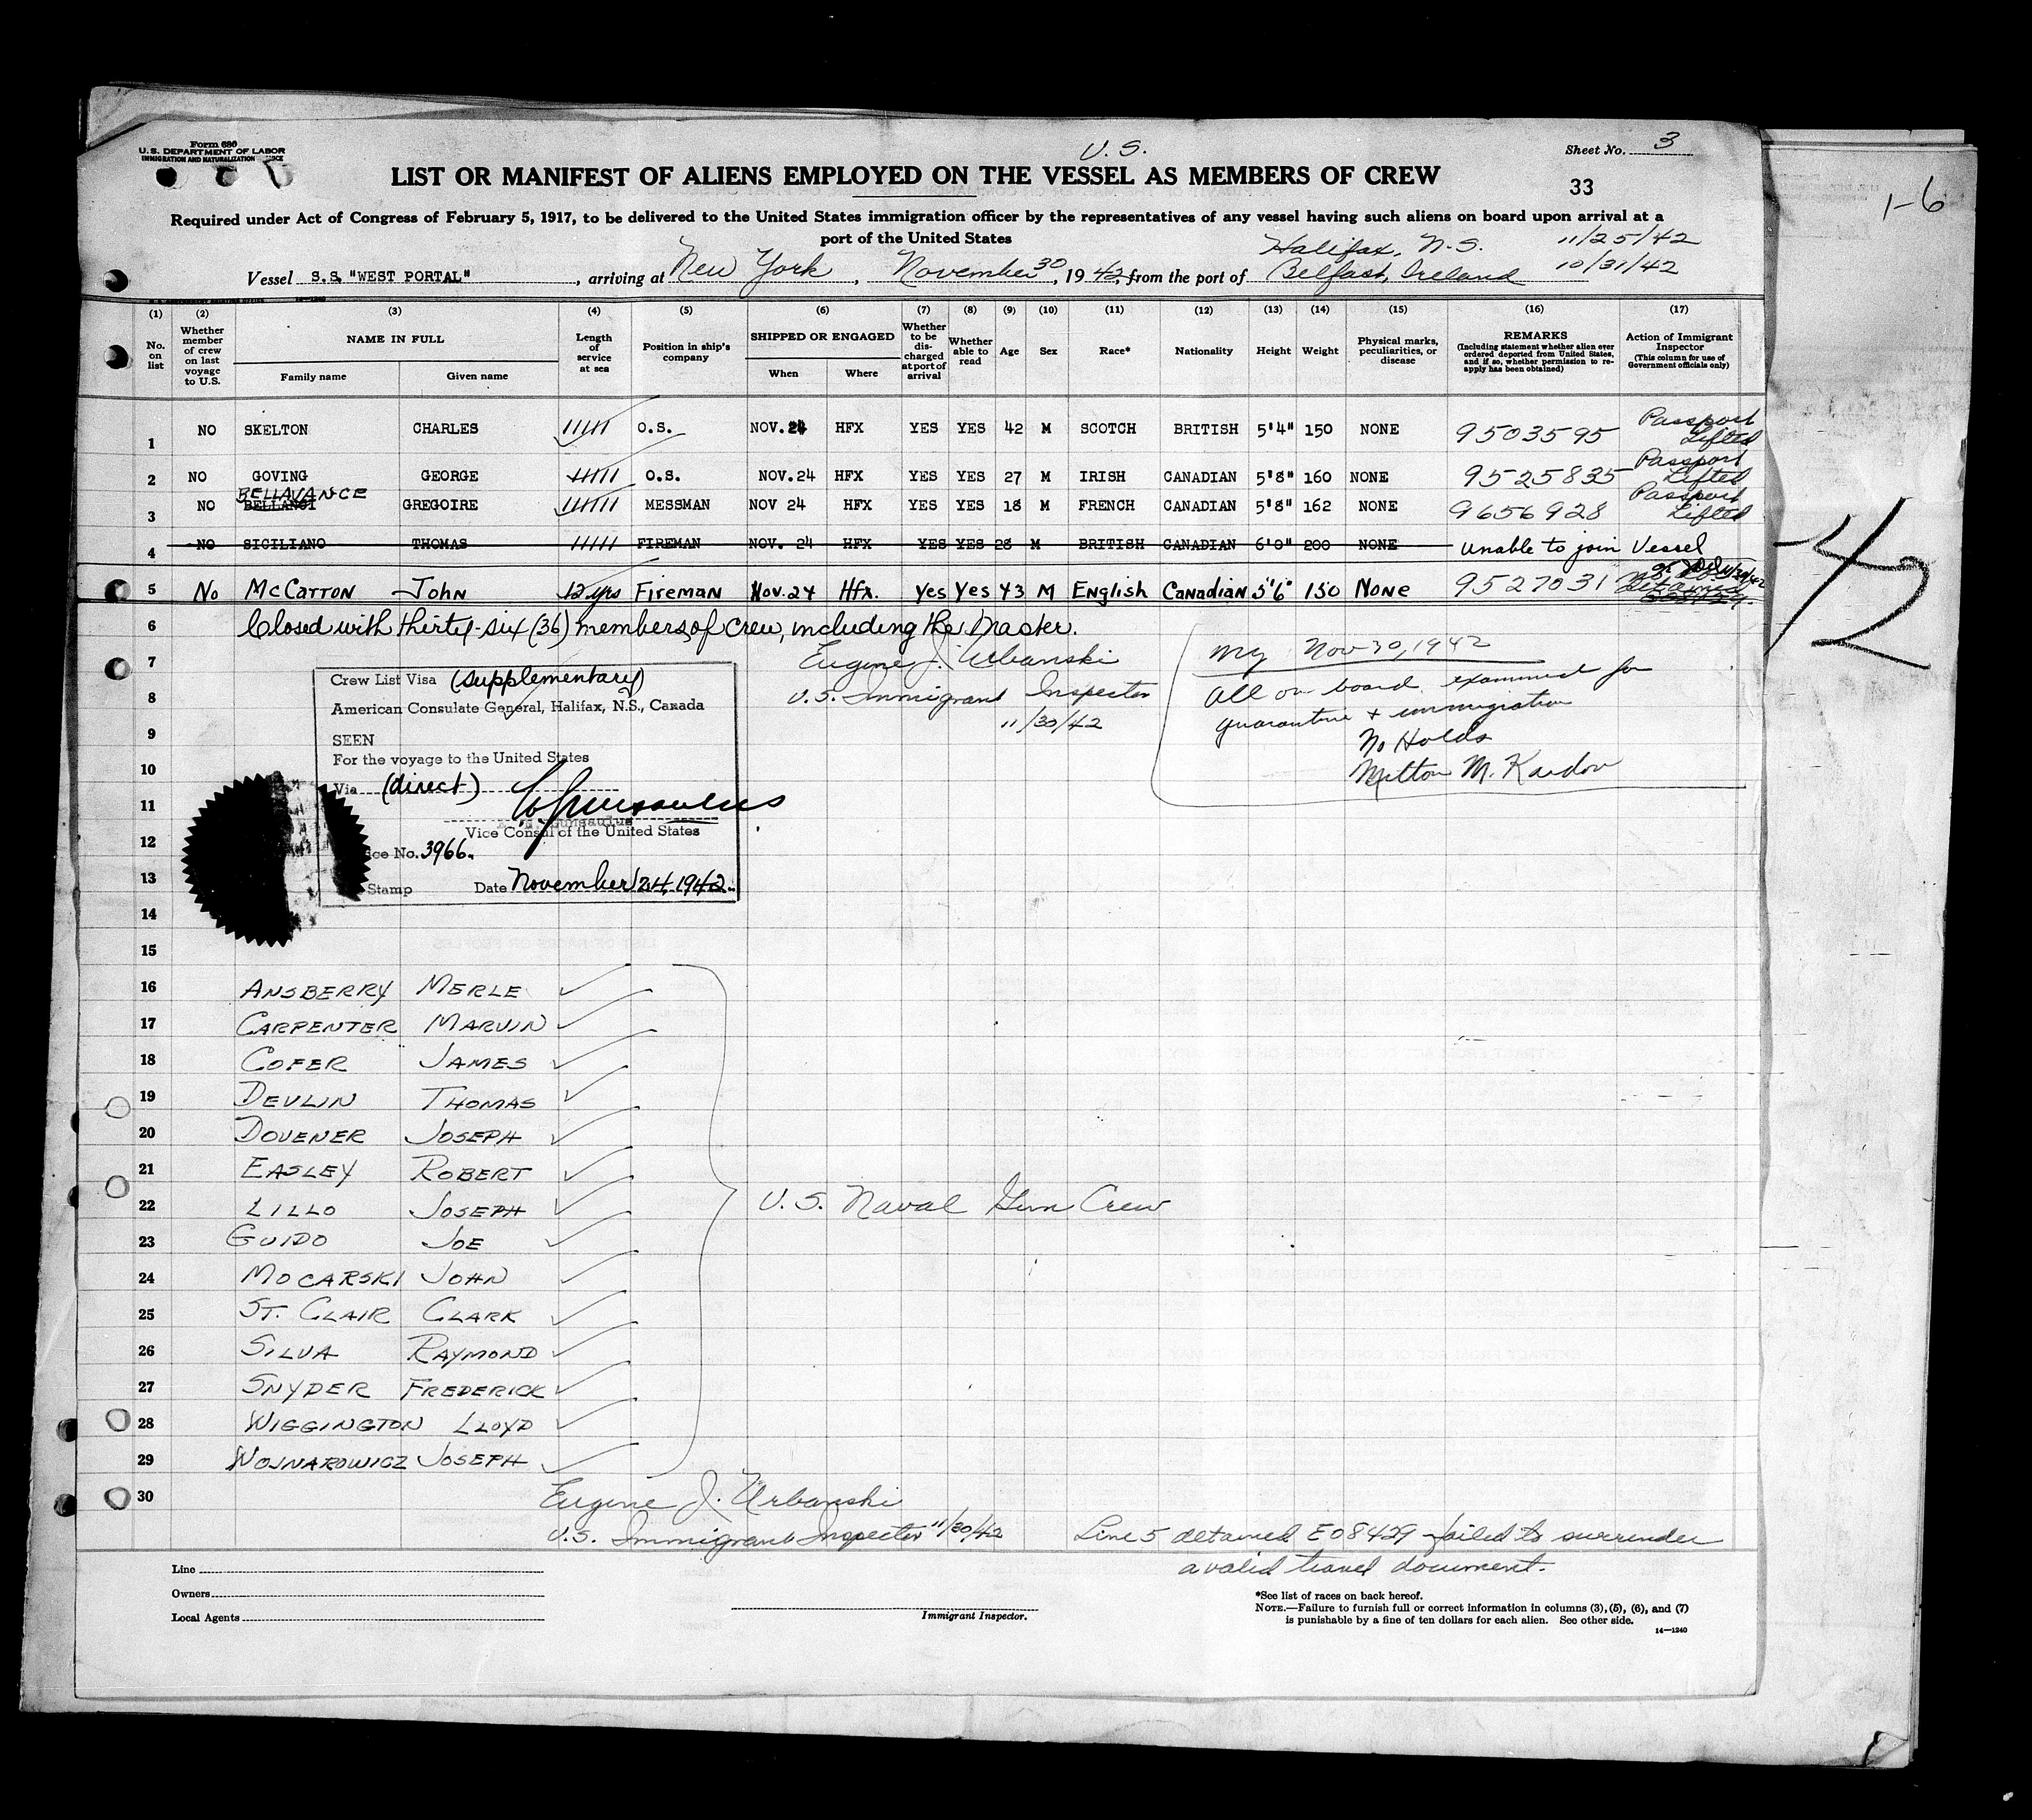 Form 680
U.S. DEPARTMENT OF LABOR
IMMIGRATION AND NATURALIZATION
U. S.
Sheet No. 3
LIST OR MANIFEST OF ALIENS EMPLOYED ON THE VESSEL AS MEMBERS OF CREW
33
1-6
Required under Act of Congress of February 5, 1917, to be delivered to the United States immigration officer by the representatives of any vessel having such aliens on board upon arrival at a
port of the United States
Halifax, N.S. 11/25/42
Vessel S.S. "WEST PORTAL", arriving at New York, November 30, 1942, from the port of Belfast, Ireland 10/31/42
(1) (2) (3) (4) (5) (6) (7) (8) (9) (10) (11) (12) (13) (14) (15) (16) (17)
No. on list
Whether member of crew on last voyage to U.S.
NAME IN FULL
Family name Given name
Length of service at sea
Position in ship's company
SHIPPED OR ENGAGED
When Where
Whether to be discharged at port of arrival
Whether able to read
Age
Sex
Race*
Nationality
Height
Weight
Physical marks, peculiarities, or disease
REMARKS
(Including statement whether alien ever ordered deported from United States, and if so, whether permission to reapply has been obtained)
Action of Immigrant Inspector
(This column for use of Government officials only)
1 NO SKELTON CHARLES O.S. NOV.24 HFX YES YES 42 M SCOTCH BRITISH 5'4" 150 NONE 9503595 Passport Lifted
2 NO GOVING GEORGE O.S. NOV.24 HFX YES YES 27 M IRISH CANADIAN 5'8" 160 NONE 9525835 Passport Lifted
BELLAVANCE
3 NO BELLANGI GREGOIRE MESSMAN NOV 24 HFX YES YES 18 M FRENCH CANADIAN 5'8" 162 NONE 9656928 Passport Lifted
4 NO SICILIANO THOMAS FIREMAN NOV. 24 HFX YES YES 28 M BRITISH CANADIAN 6'0" 200 NONE Unable to join Vessel
5 No McCarron John 12 yrs Fireman Nov. 24 Hfx. Yes Yes 43 M English Canadian 5'6" 150 None 9527031 detained
6 Closed with thirty-six (36) members of crew, including the Master.
7 Eugene J. Urbanski
8 U.S. Immigrant Inspector
9 11/30/42
10
11
12
13
14
15
NY Nov 30, 1942
All on board examined for
quarantine + immigration
No Holds
Milton M. Kardon
-42
Crew List Visa (supplementary)
American Consulate General, Halifax, N.S., Canada
SEEN
For the voyage to the United States
Via (direct)
Vice Consul of the United States
No. 3966.
Stamp Date November 24, 1942
16 ANSBERRY MERLE
17 CARPENTER MARVIN
18 COFER JAMES
19 DEVLIN THOMAS
20 DOVENER JOSEPH
21 EASLEY ROBERT
22 LILLO JOSEPH
U.S. Naval Gun Crew
23 GUIDO JOE
24 MOCARSKI JOHN
25 ST. CLAIR CLARK
26 SILVA RAYMOND
27 SNYDER FREDERICK
28 WIGGINGTON LLOYD
29 WOJNAROWICZ JOSEPH
30 Eugene J. Urbanski
U.S. Immigrant Inspector 11/30/42
Line 5 detained E08429 failed to surrender
a valid travel document.
Line
Owners
Local Agents
Immigrant Inspector.
*See list of races on back hereof.
NOTE.—Failure to furnish full or correct information in columns (3), (5), (6), and (7)
is punishable by a fine of ten dollars for each alien. See other side.
14—1240